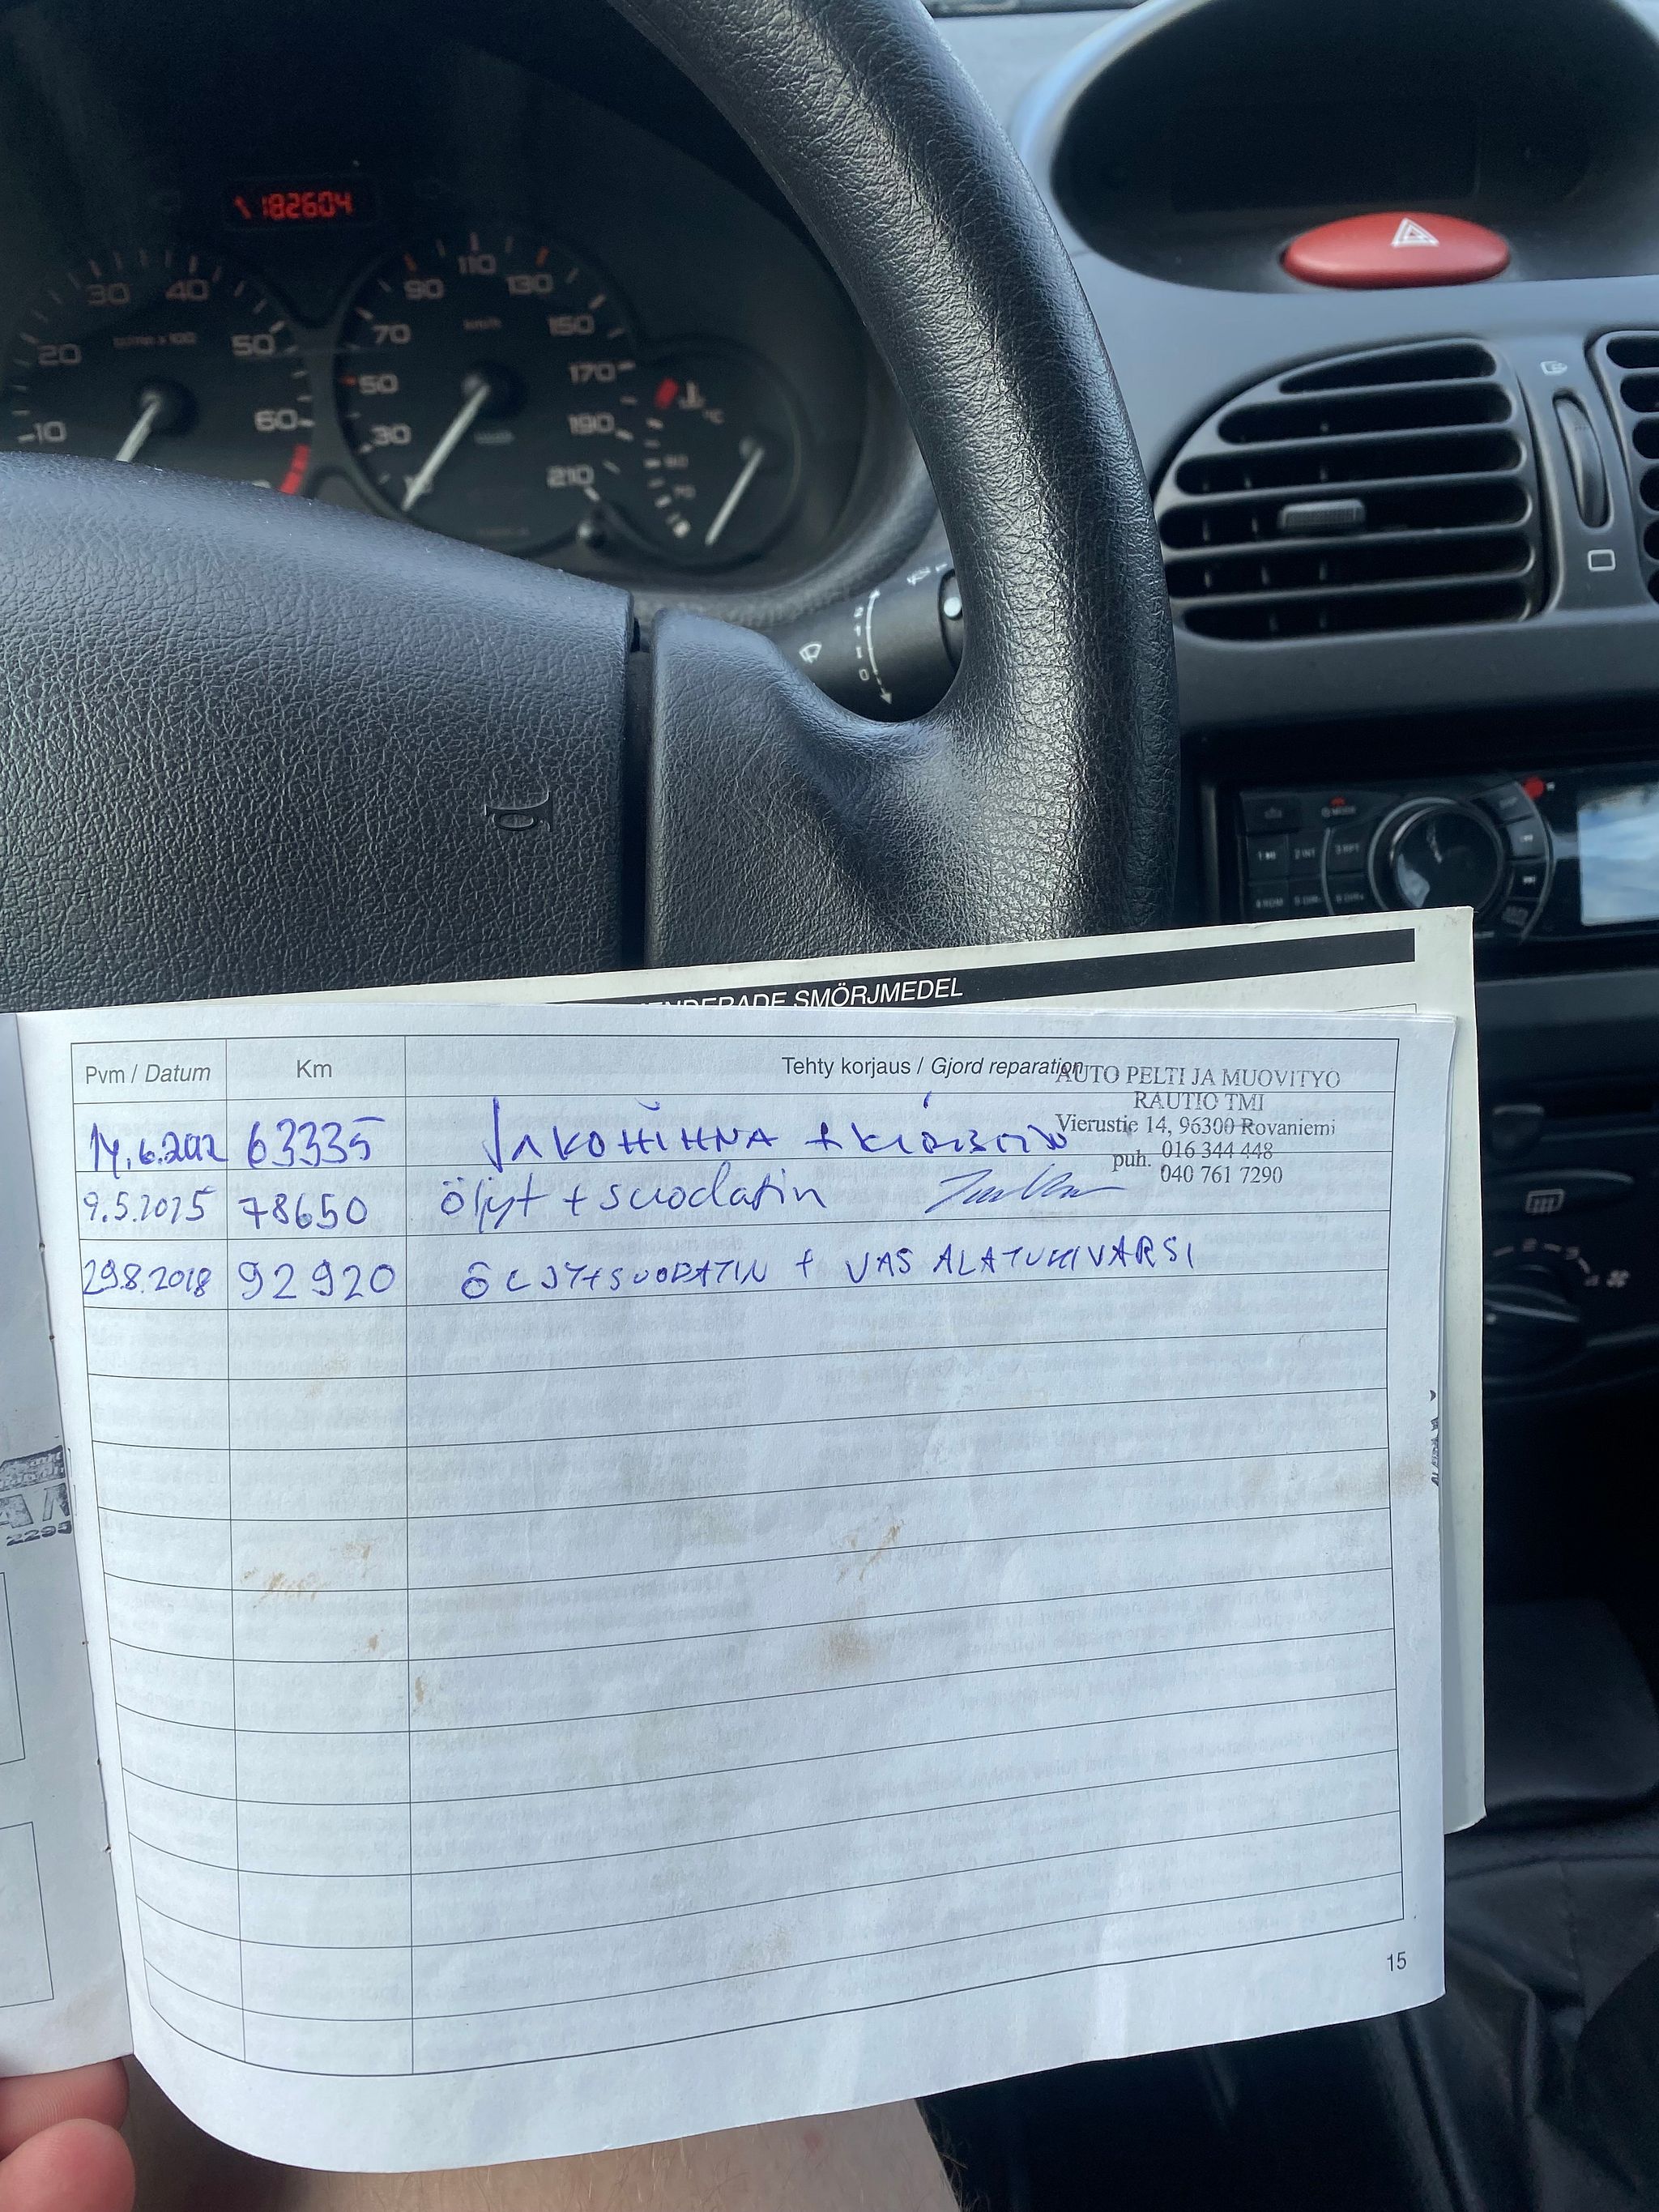 182604
10 20 30 40 50 60
30 50 70 90 110 130 150 170 190 210
km/h
°C
SMÖRJMEDEL
Pvm / Datum Km Tehty korjaus / Gjord reparation
AUTO PELTI JA MUOVITYO
RAUTIO TMI
Vierustie 14, 96300 Rovaniemi
puh. 016 344 448
040 761 7290
14.6.2012 63335 JAKOHIHNA +
9.5.2015 78650 öljyt + suodatin
29.8.2018 92920 ÖLJYT+SUODATIN + VAS ALATUKIVARSI
2295
15